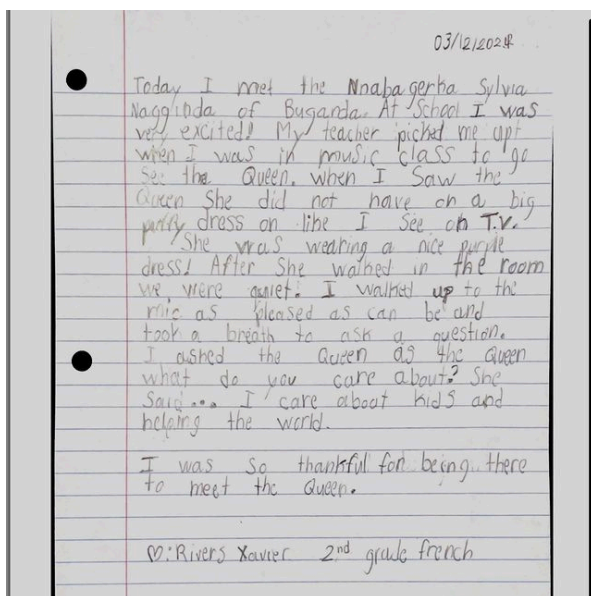 03/12/2024
Today I met the Nnabagerka Sylvia
Nagginda of Buganda. At School I was
very excited! My teacher picked me upt
when I was in music class to go
See the Queen. when I Saw the
Queen She did not have on a big
puffy dress on like I See on T.V.
She was wearing a nice purple
dress! After She walked in the room
we were quiet! I walked up to the
mic as pleased as can be and
took a breath to ask a question.
I ashed the Queen as the Queen
what do you care about? She
Said... I care about kids and
helping the world.
I was so thankful for being there
to meet the Queen.
♡:Rivers Xavier 2nd grade french